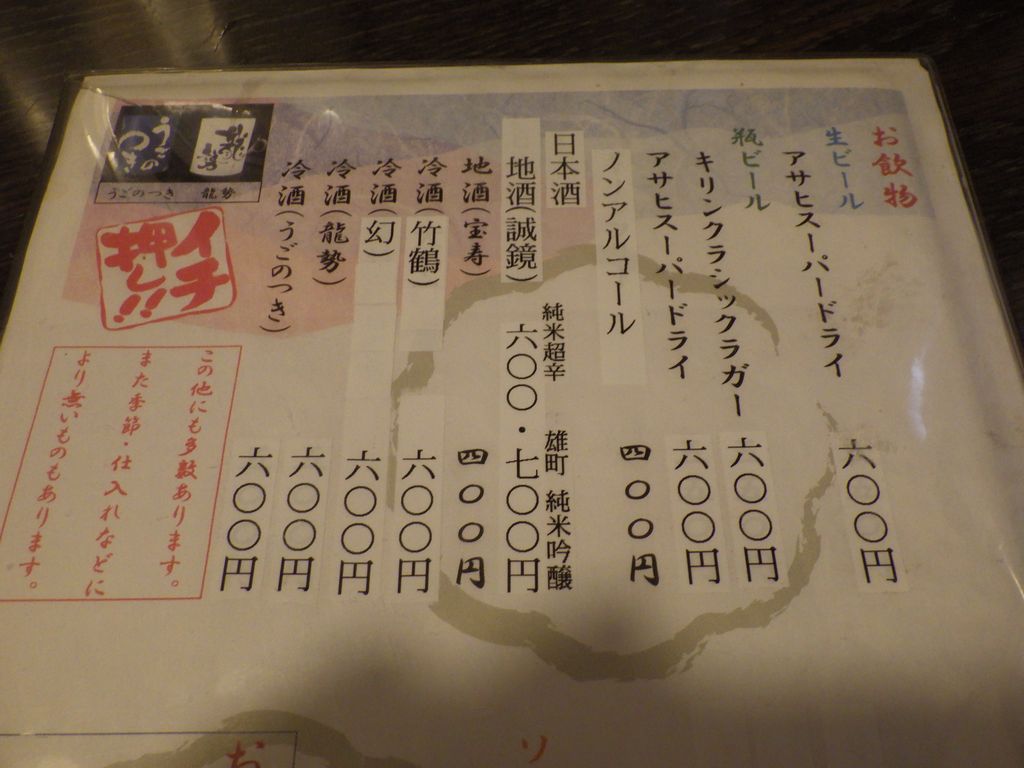 お飲物
生ビール
アサヒスーパードライ 六〇〇円
瓶ビール
キリンクラシックラガー 六〇〇円
アサヒスーパードライ 六〇〇円
ノンアルコール 四〇〇円
日本酒
純米超辛 雄町 純米吟醸
地酒(誠鏡) 六〇〇・七〇〇円
地酒(宝寿) 四〇〇円
冷酒(竹鶴) 六〇〇円
冷酒(幻) 六〇〇円
冷酒(龍勢) 六〇〇円
冷酒(うごのつき) 六〇〇円
龍勢
うごのつき
うごのつき 龍勢
イチ
押し!!
この他にも多数あります。
また季節・仕入れなどに
より無いものもあります。
お